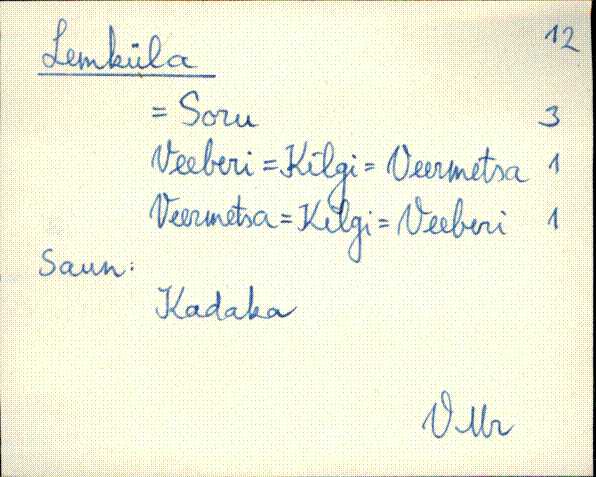 Lemküla 12
= Soru 3
Veeberi = Kilgi = Veermetsa 1
Veermetsa = Kilgi = Veeberi 1
Saun:
Kadaka
VMr